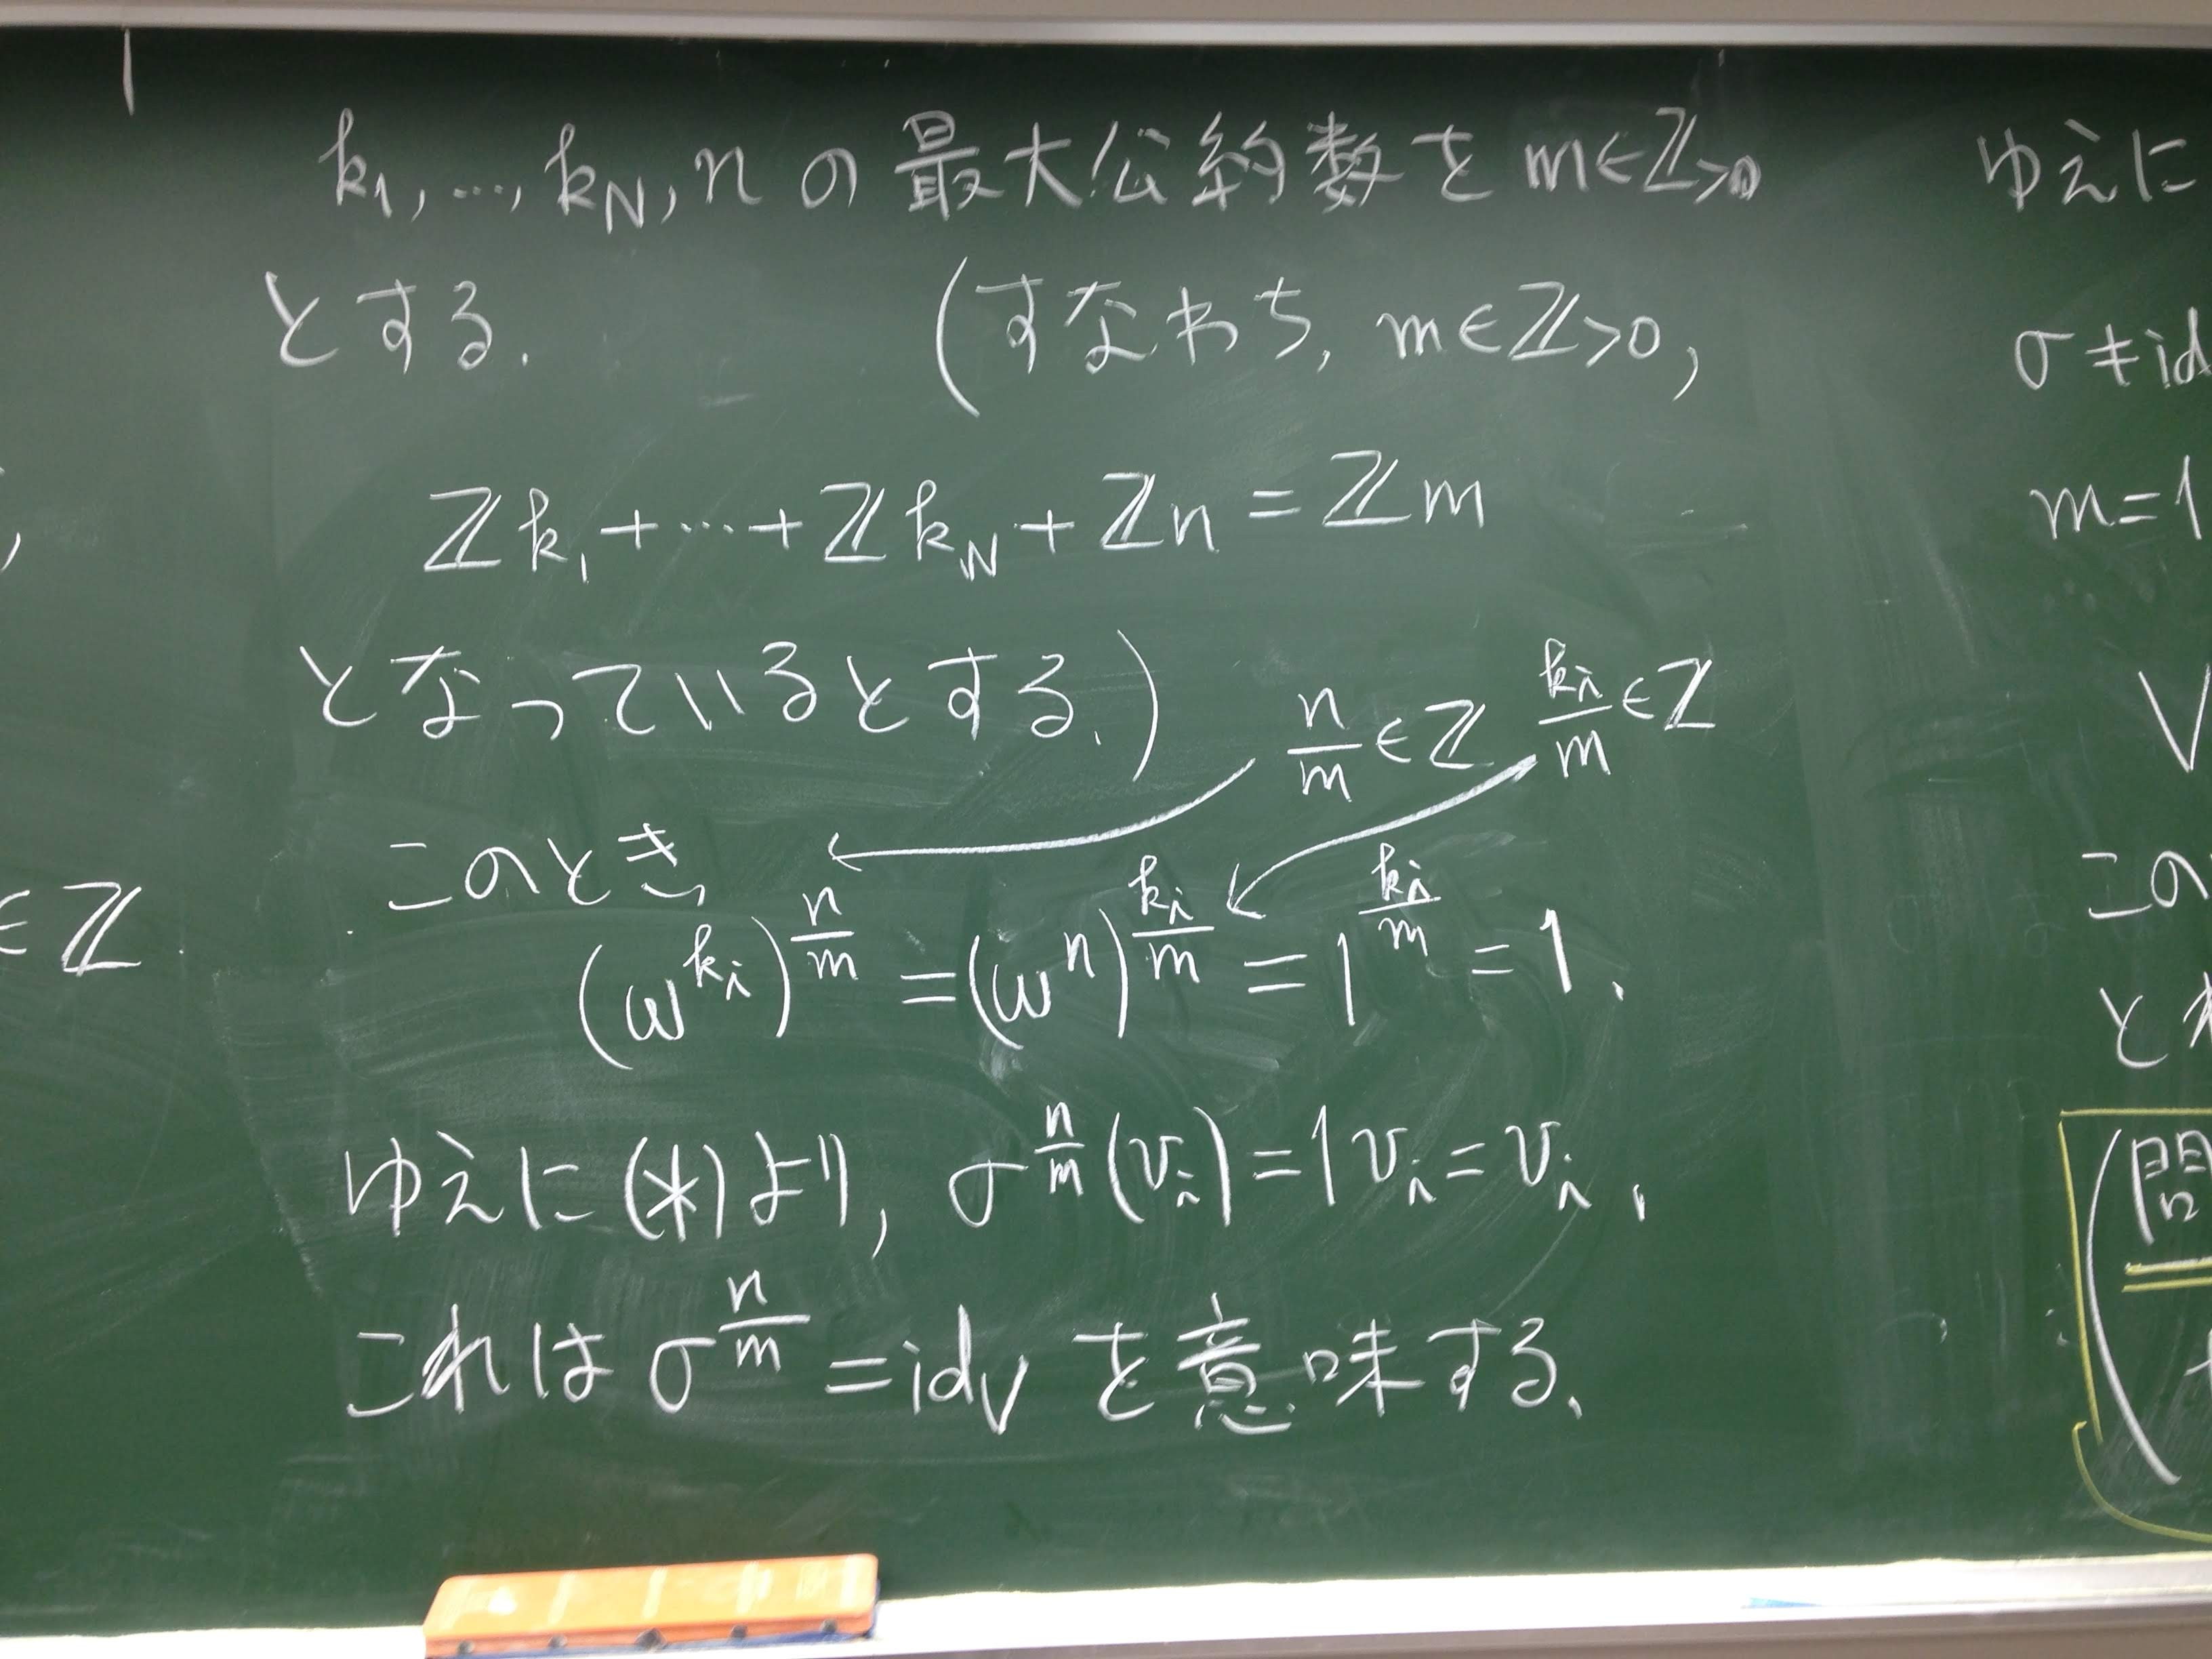 k₁, …, k_N, n の最大公約数を m∈ℤ>0
とする. (すなわち, m∈ℤ>0,
ℤk₁+…+ℤk_N+ℤn=ℤm
となっているとする.)
n/m ∈ℤ k_i/m ∈ℤ
このとき,
(ω^{k_i})^{n/m} = (ω^n)^{k_i/m} = 1^{k_i/m} = 1.
ゆえに (*) より, σ^{n/m}(v_i) = 1v_i = v_i.
これは σ^{n/m} = id_V を意味する.
,
∈ℤ
ゆえに
σ≠id
m=1
V
この
と
(問